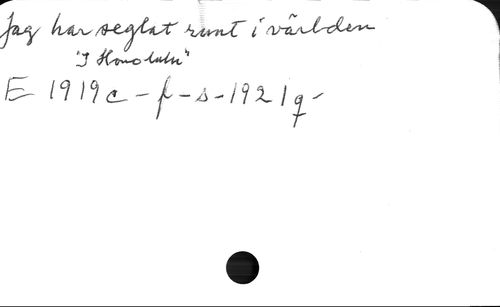 Jag har seglat runt i världen
"I Honolulu"
E 1919c - f - s - 1921q -